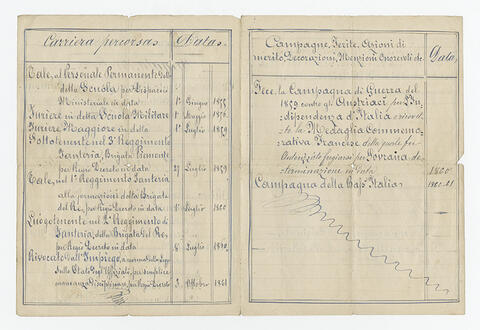 Carriera percorsa
Data
Tale, al Personale Permanente
della Scuola per Dispaccio
Ministeriale in data
1° Giugno 1855
Furiere in della Scuola Militare
1° Maggio
Furiere Maggiore in della
1° Luglio 1859
Sottotenente nel 3° Reggimento
Fanteria, Brigata Piemonte
per Regio Decreto in data
27 Luglio 1859
Tale, nel 1° Reggimento Fanteria
alla formazione della Brigata
del Re, per Regio Decreto in data
1° Luglio 1860
Luogotenente nel 2° Reggimento di
Fanteria, della Brigata del Re,
per Regio Decreto in data
8 Luglio 1860
Rivocato dall'Impiego, a norma della Legge
sullo Stato degli Uffiziali, per semplice
mancanza disciplinare, per Regio Decreto
3 Ottobre 1861
Campagne, Ferite, Azioni di
merito, Decorazioni, Menzioni Onorevoli &c
Data
Fece la Campagna di Guerra del
1859 contro gli Austriaci per l'In-
dipendenza d'Italia e ricevet-
te la Medaglia Commemo-
rativa Francese della quale fu
Autorizzato fregiarsi per Sovrana de-
terminazione in data
1860
Campagna della Bassa Italia
1860-61